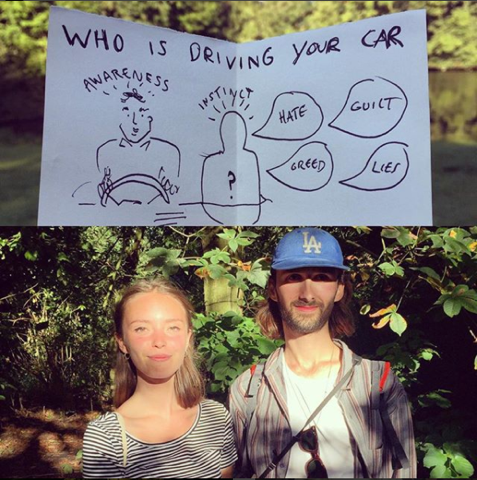 WHO IS DRIVING YOUR CAR
AWARENESS
INSTINCT
HATE
GUILT
?
GREED
LIES
LA